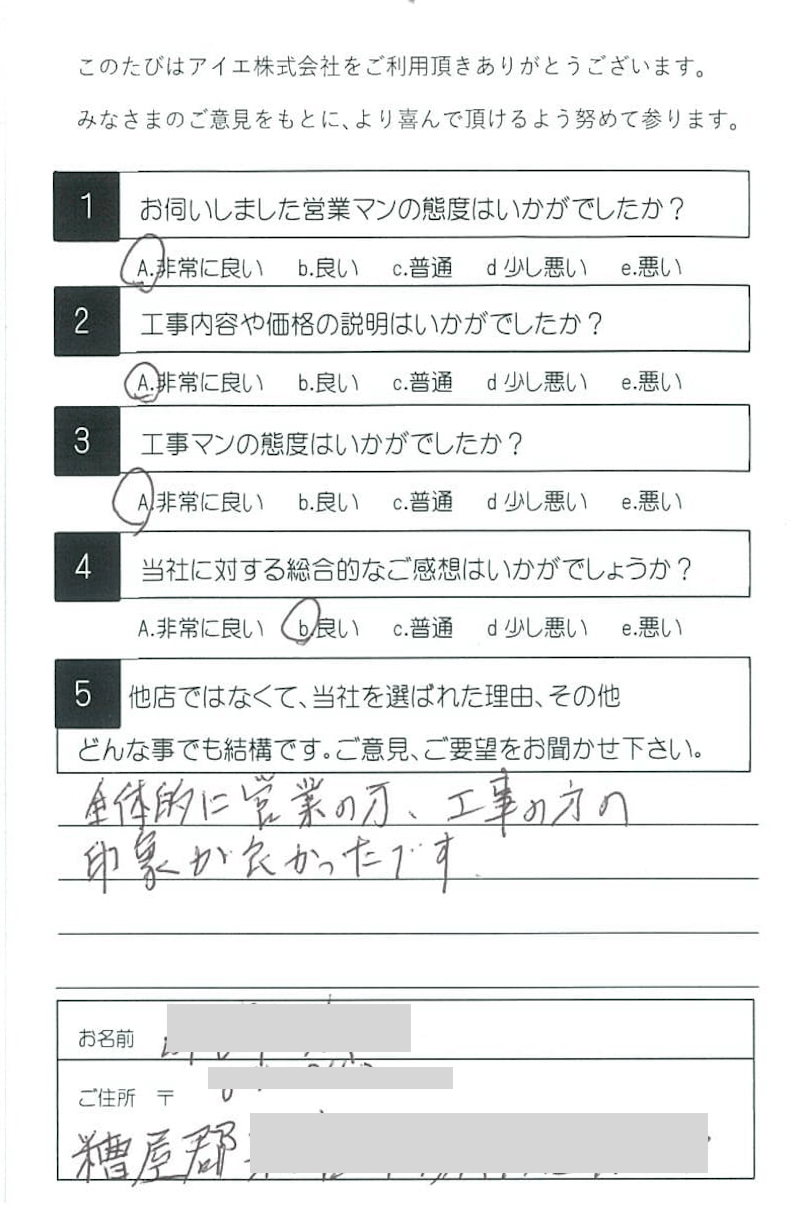 このたびはアイエ株式会社をご利用頂きありがとうございます。
みなさまのご意見をもとに、より喜んで頂けるよう努めて参ります。
1 お伺いしました営業マンの態度はいかがでしたか?
A.非常に良い b.良い c.普通 d 少し悪い e.悪い
2 工事内容や価格の説明はいかがでしたか?
A.非常に良い b.良い c.普通 d 少し悪い e.悪い
3 工事マンの態度はいかがでしたか?
A.非常に良い b.良い c.普通 d 少し悪い e.悪い
4 当社に対する総合的なご感想はいかがでしょうか?
A.非常に良い b.良い c.普通 d 少し悪い e.悪い
5 他店ではなくて、当社を選ばれた理由、その他
どんな事でも結構です。ご意見、ご要望をお聞かせ下さい。
全体的に営業の方、工事の方の
印象が良かったです.
お名前
ご住所 〒
糟屋郡